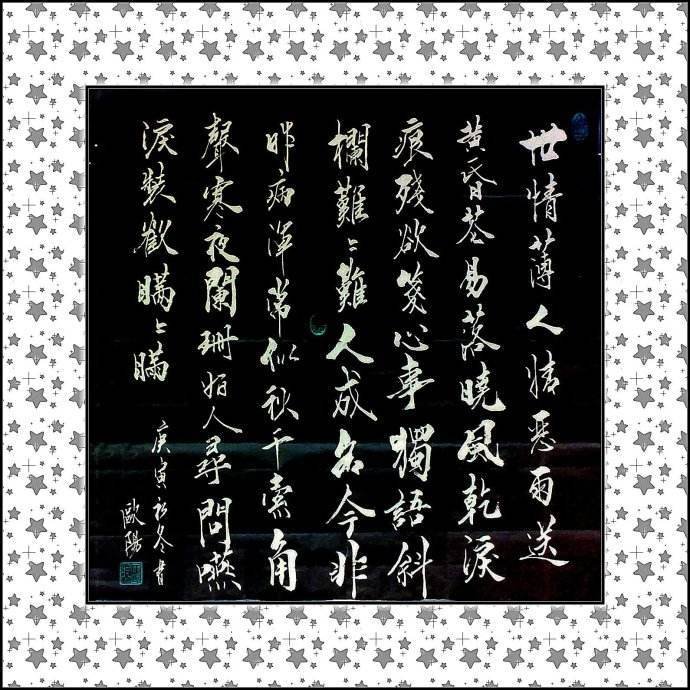 世情薄人情惡雨送
黄昏花易落曉風乾淚
痕殘欲箋心事獨語斜
欄難〻難人成各今非
昨病渾常似秋千索角
聲寒夜闌珊怕人尋問嚥
淚裝歡瞞〻瞞
庚寅初冬書
歐陽